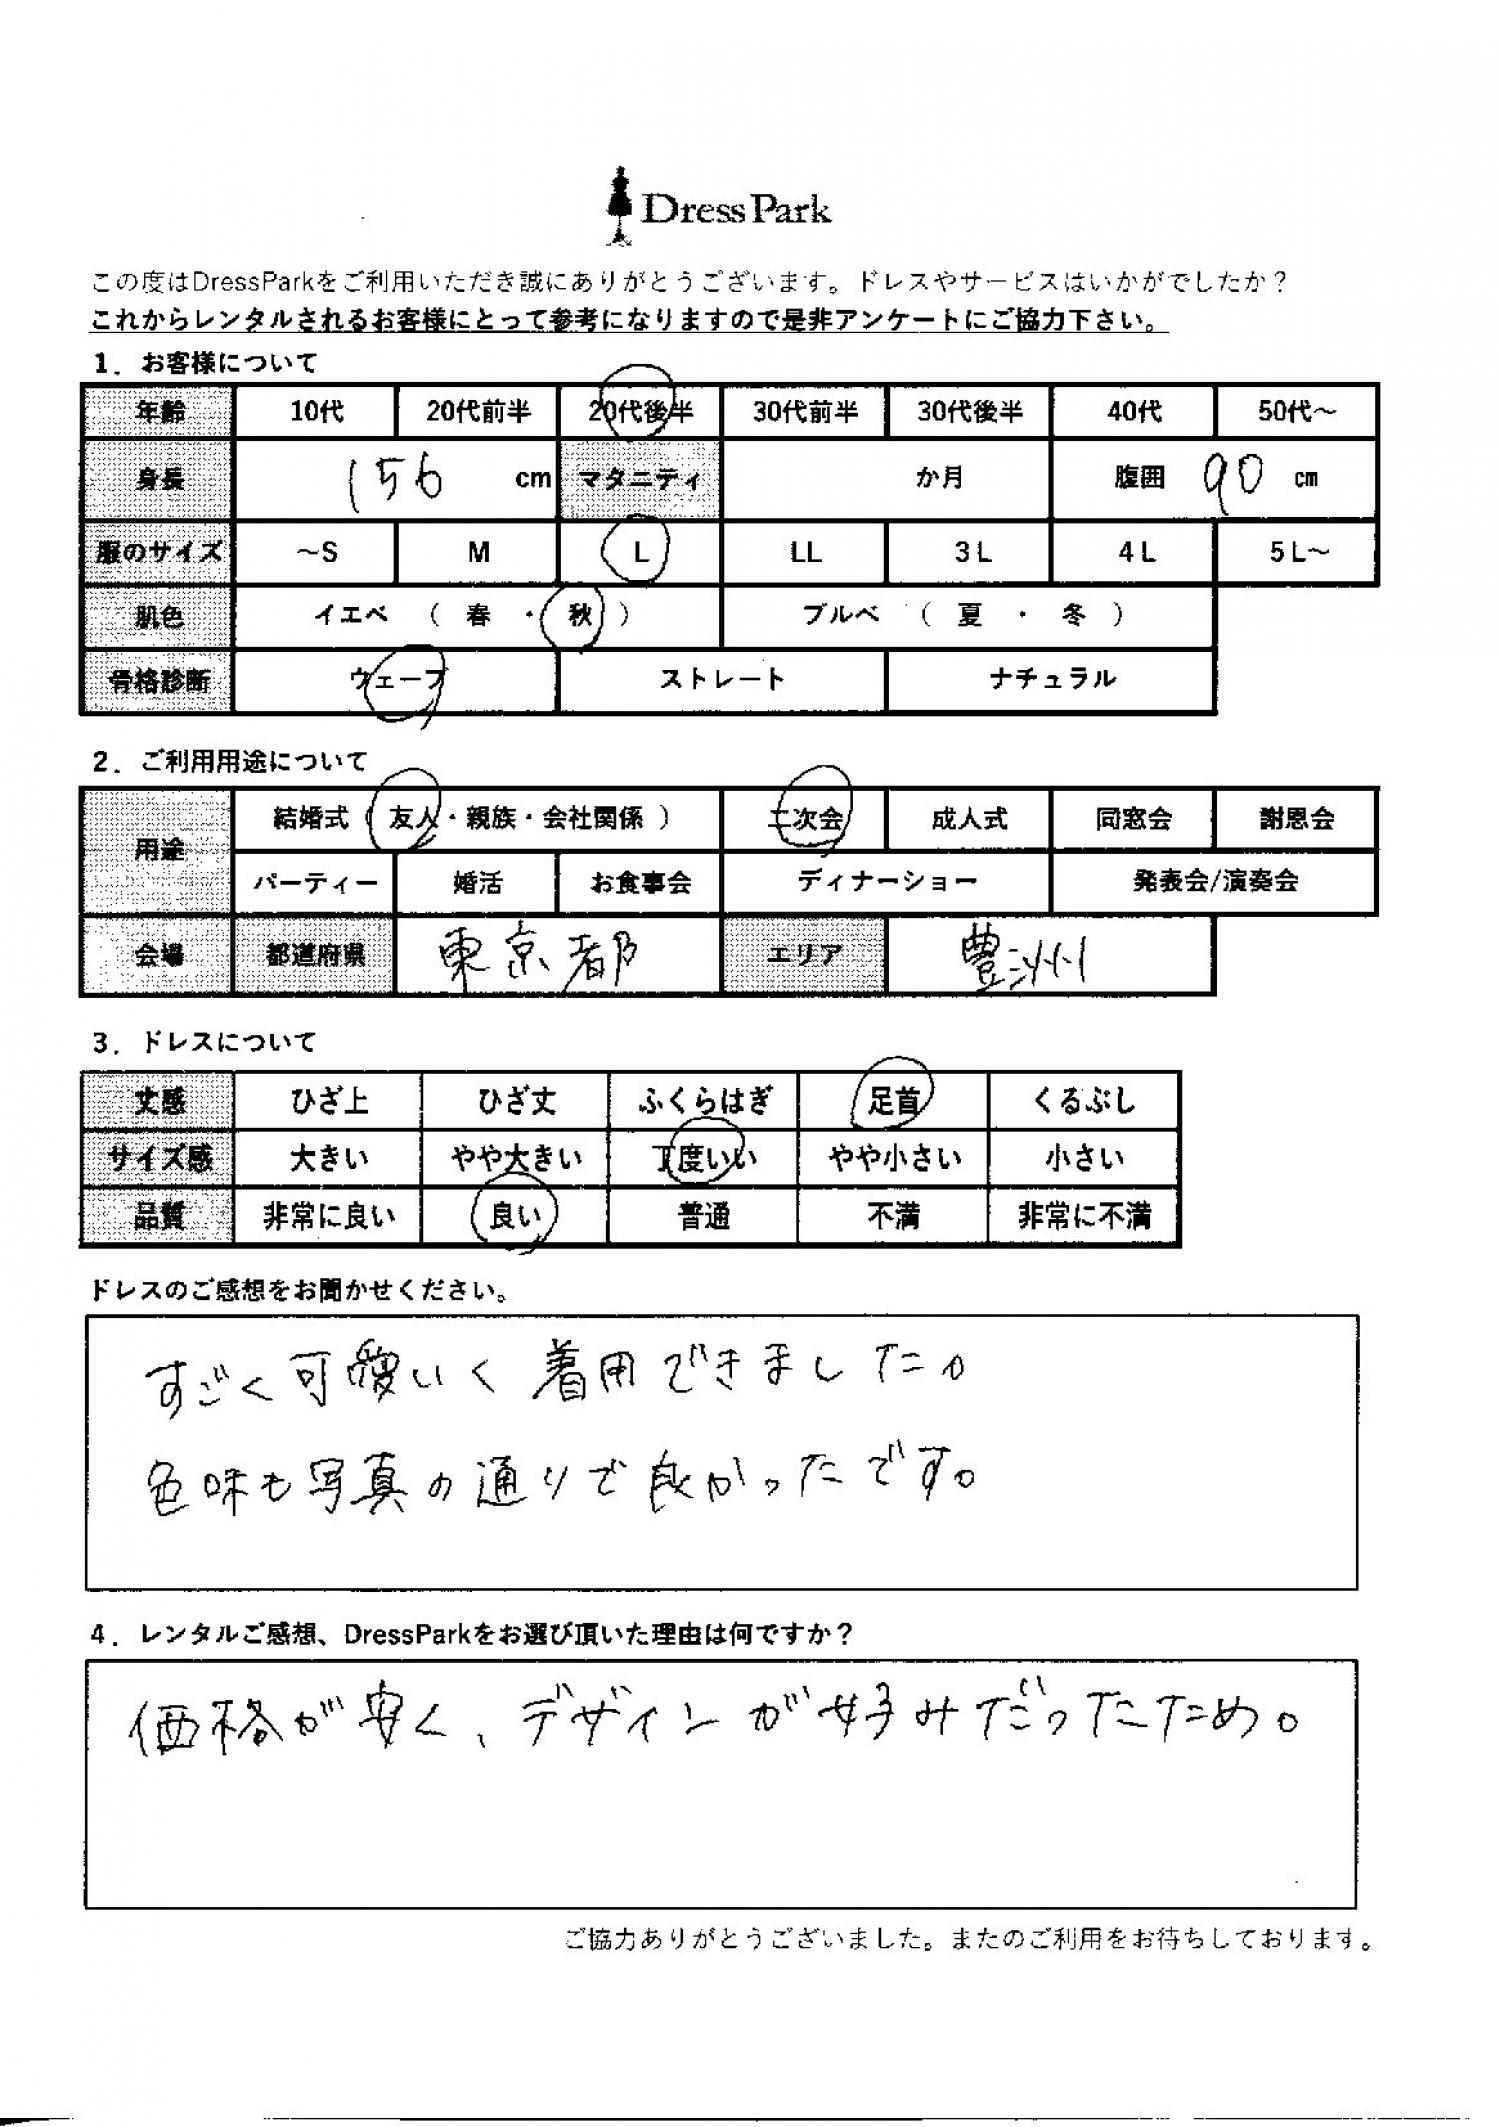 Dress Park
この度はDressParkをご利用いただき誠にありがとうございます。ドレスやサービスはいかがでしたか？
これからレンタルされるお客様にとって参考になりますので是非アンケートにご協力下さい。
1．お客様について
年齢 10代 20代前半 20代後半 30代前半 30代後半 40代 50代～
身長 156 cm マタニティ か月 腹囲 90 cm
服のサイズ ～S M L LL 3L 4L 5L～
肌色 イエベ （ 春 ・ 秋 ） ブルベ （ 夏 ・ 冬 ）
骨格診断 ウェーブ ストレート ナチュラル
2．ご利用用途について
用途 結婚式（ 友人・親族・会社関係 ） 二次会 成人式 同窓会 謝恩会
パーティー 婚活 お食事会 ディナーショー 発表会/演奏会
会場 都道府県 東京都 エリア 豊洲
3．ドレスについて
丈感 ひざ上 ひざ丈 ふくらはぎ 足首 くるぶし
サイズ感 大きい やや大きい 丁度いい やや小さい 小さい
品質 非常に良い 良い 普通 不満 非常に不満
ドレスのご感想をお聞かせください。
すごく可愛いく着用できました。
色味も写真の通りで良かったです。
4．レンタルご感想、DressParkをお選び頂いた理由は何ですか？
価格が安く、デザインが好みだったため。
ご協力ありがとうございました。またのご利用をお待ちしております。